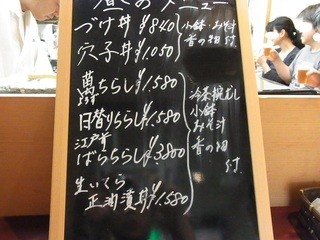 昼のメニュー
づけ丼 ¥840
穴子丼 ¥1,050
小鉢・みそ汁
香の物 付
ちらし ¥1,580
日替りちらし ¥1,580
江戸前
ばらちらし ¥3,800
生いくら
正油漬丼 ¥1,580
冷茶碗むし
小鉢
みそ汁
香の物
付